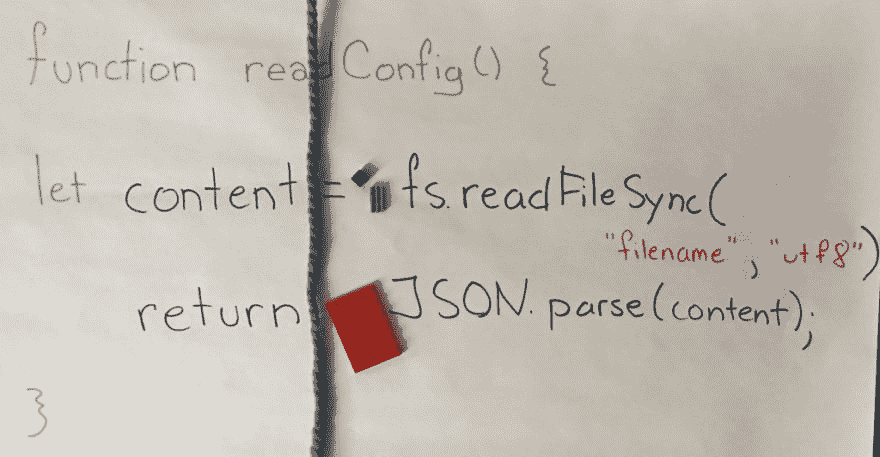 function readConfig() {
let content = fs.readFileSync(
"filename", "utf8")
return JSON.parse(content);
}